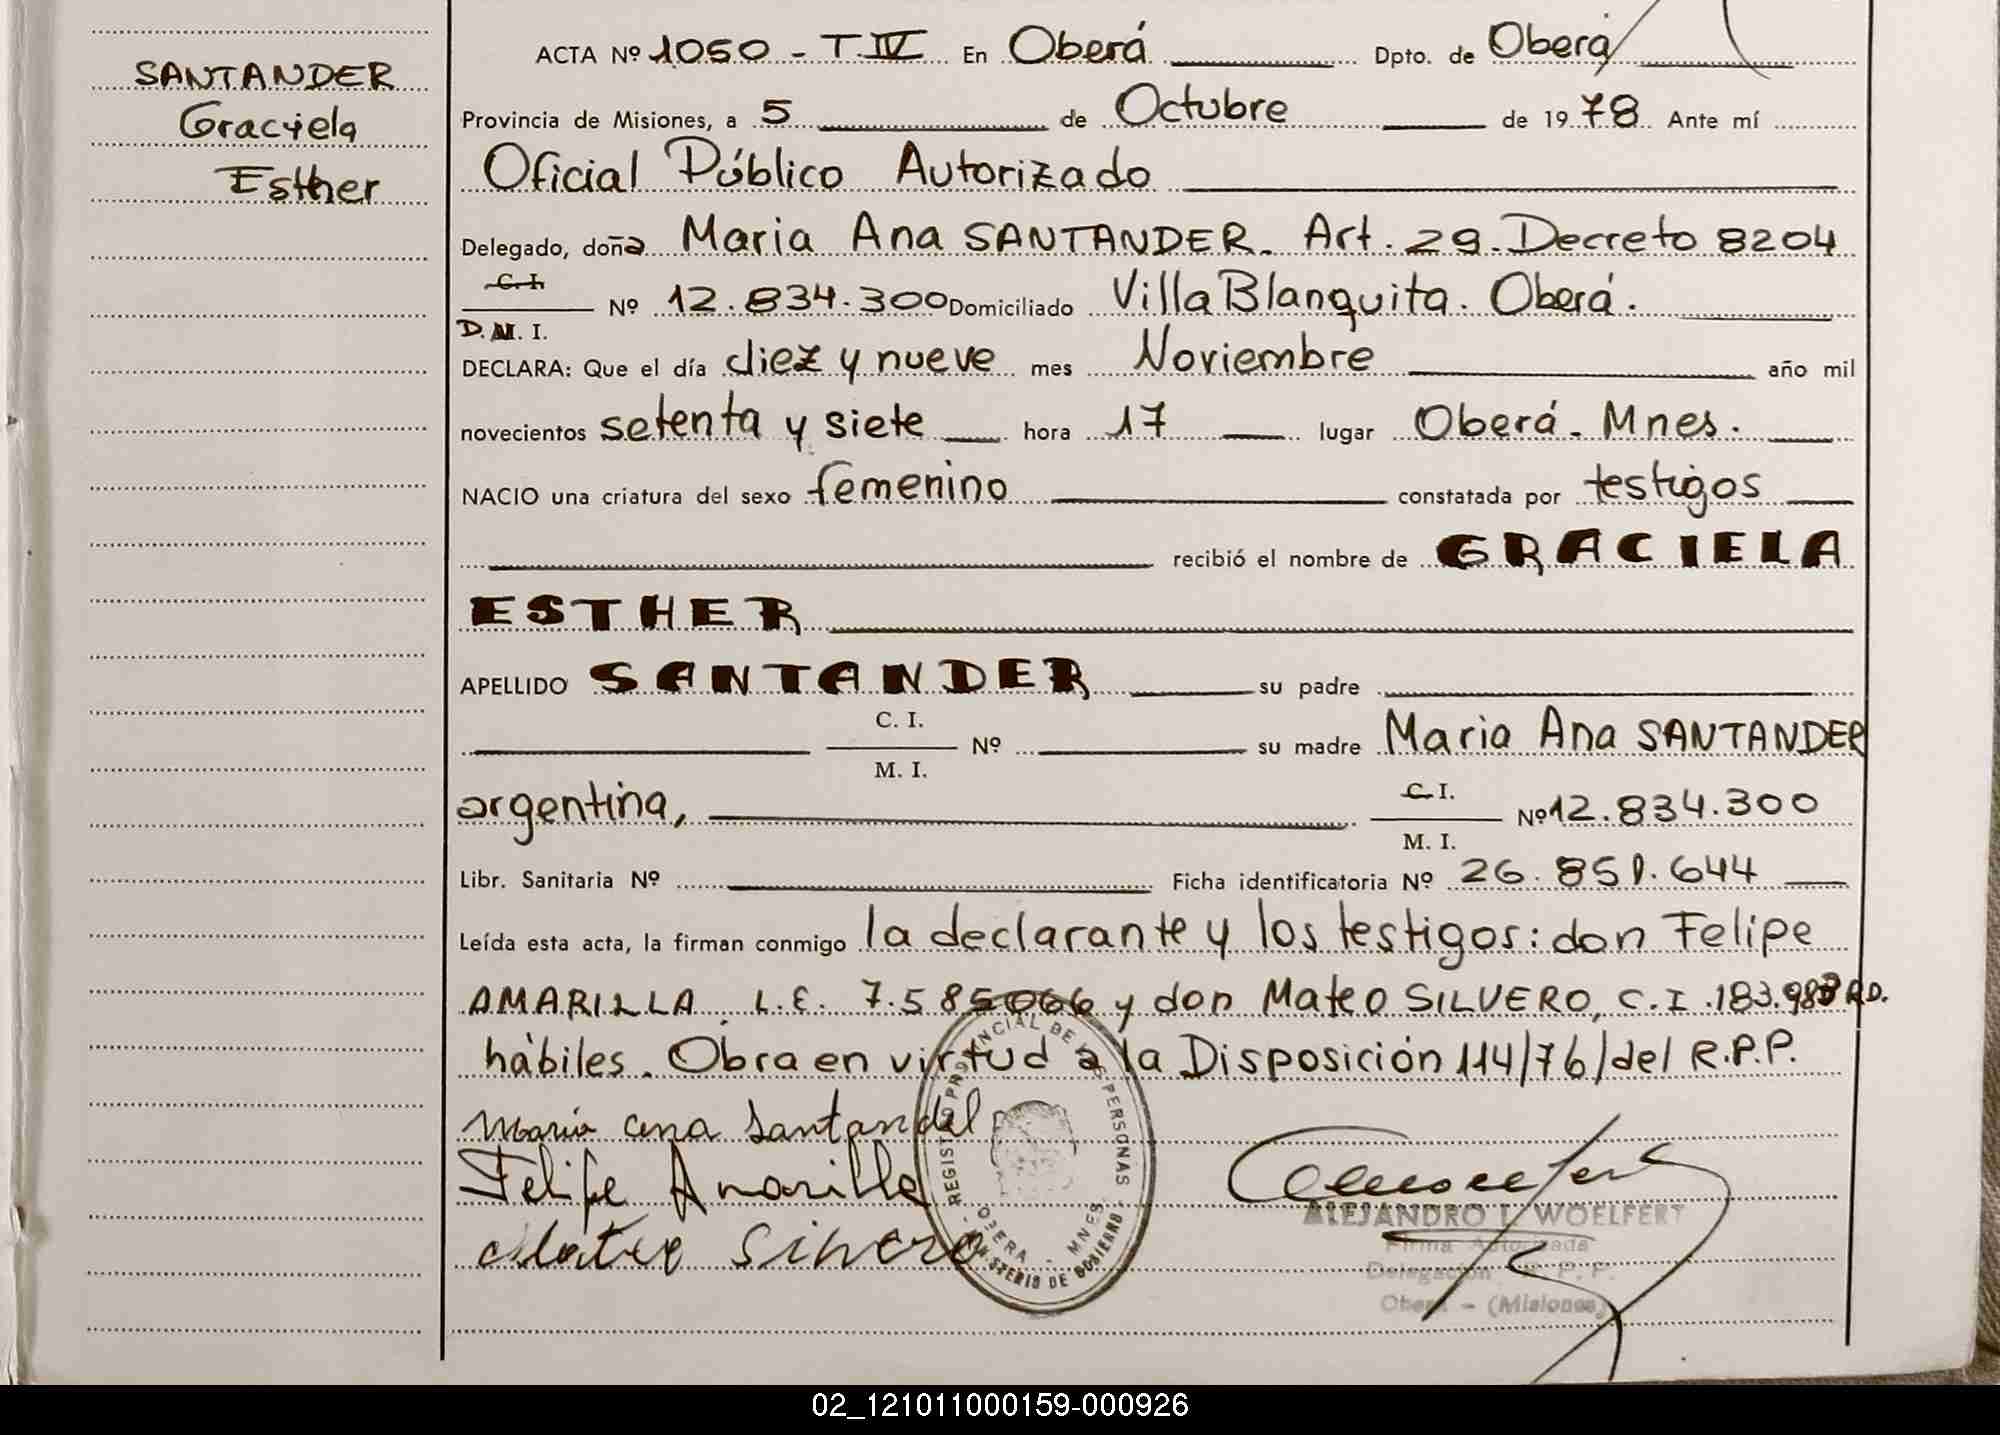 SANTANDER
Graciela
Esther
ACTA Nº 1050 - T. IV En Oberá Dpto. de Oberá
Provincia de Misiones, a 5 de Octubre de 1978 Ante mí
Oficial Público Autorizado
Delegado, doña Maria Ana SANTANDER. Art. 29. Decreto 8204
C. I.
Nº 12.834.300 Domiciliado Villa Blanquita. Oberá.
D. M. I.
DECLARA: Que el día diez y nueve mes Noviembre año mil
novecientos setenta y siete hora 17 lugar Oberá - Mnes.
NACIO una criatura del sexo femenino constatada por testigos
recibió el nombre de GRACIELA
ESTHER
APELLIDO SANTANDER su padre
C. I.
Nº su madre Maria Ana SANTANDER
M. I.
argentina, C. I. Nº 12.834.300
M. I.
Libr. Sanitaria Nº Ficha identificatoria Nº 26.851.644
Leída esta acta, la firman conmigo la declarante y los testigos: don Felipe
AMARILLA. L.E. 7.585066 y don Mateo SILVERO, C.I. 183.983 R.D.
hábiles. Obra en virtud a la Disposición 114/76/del R.P.P.
Maria ana Santander
Felipe Amarilla
Mateo Silvero
REGISTRO PROVINCIAL DE LAS PERSONAS
OBERA - MNES.
MINISTERIO DE GOBIERNO
ALEJANDRO L. WOELFERT
Firma Autorizada
Delegación R. P. P.
Oberá - (Misiones)
02_121011000159-000926